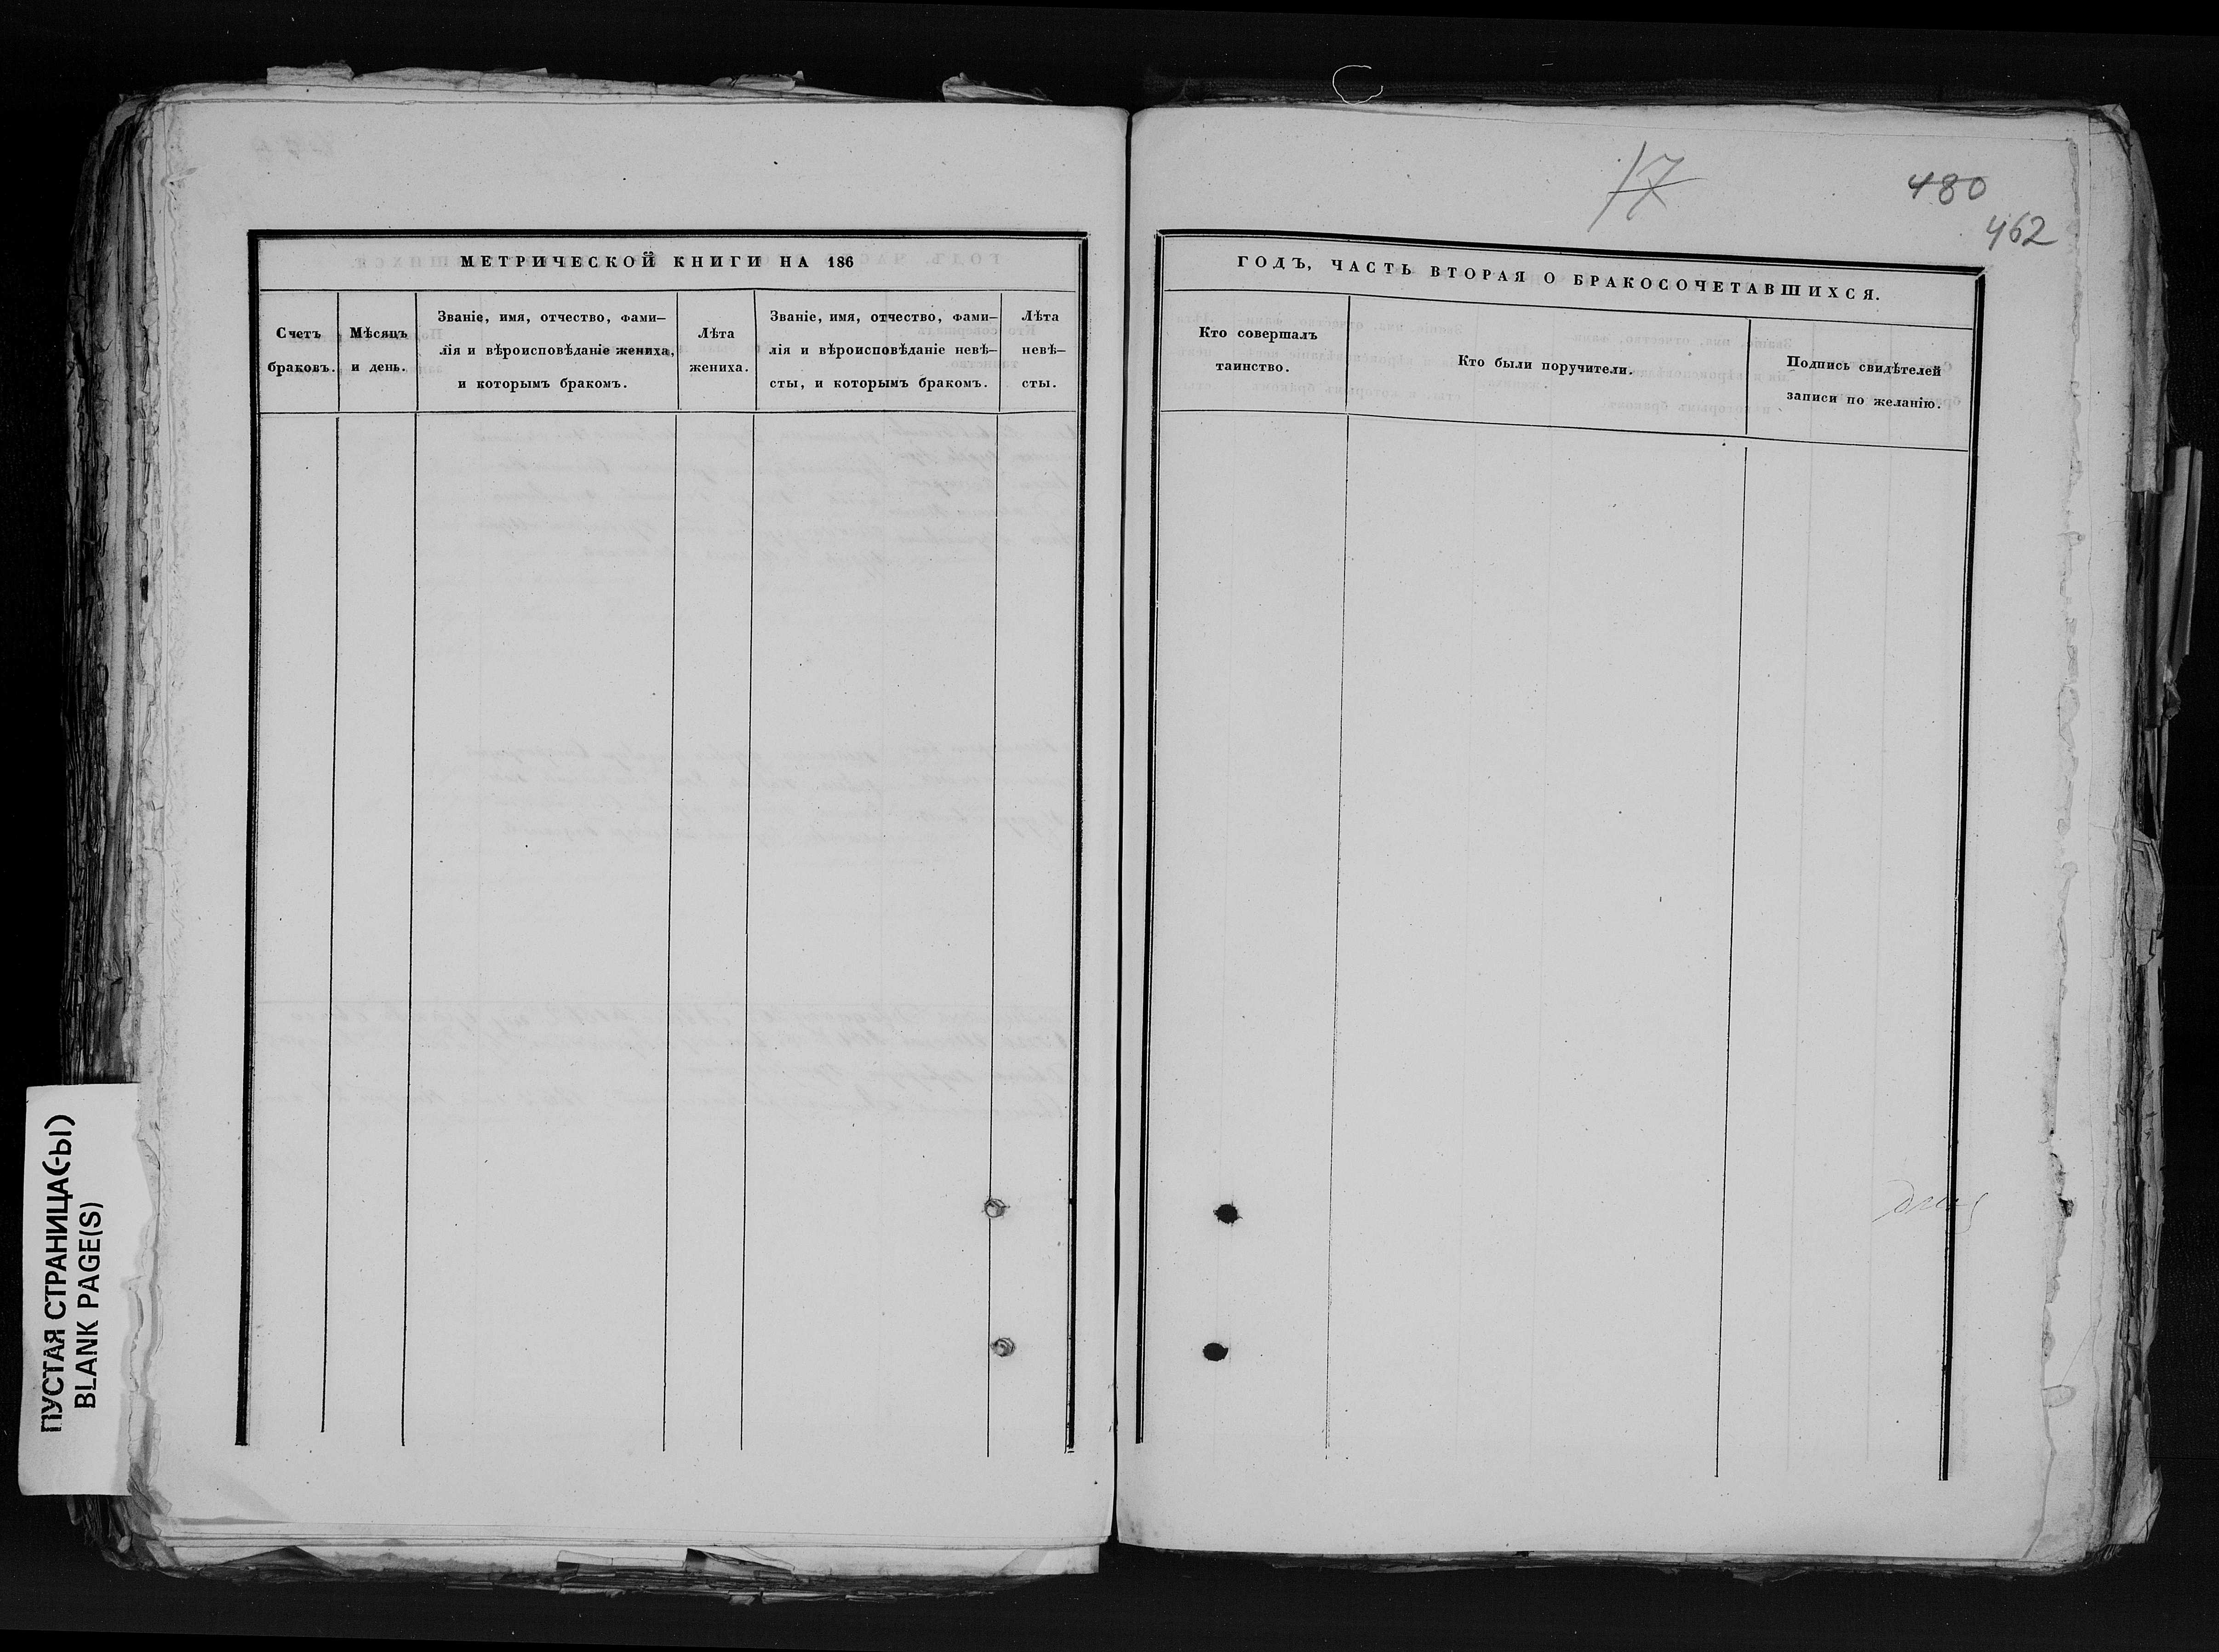 МЕТРИЧЕСКОЙ КНИГИ НА 186
Счетъ
браковъ.
Мѣсяцъ
и день.
Званіе, имя, отчество, фами–
лія и вѣроисповѣданіе жениха,
и которымъ бракомъ.
Лѣта
жениха.
Званіе, имя, отчество, фами–
лія и вѣроисповѣданіе невѣ–
сты, и которымъ бракомъ.
Лѣта
невѣ–
сты.
17
480
462
ГОДЪ, ЧАСТЬ ВТОРАЯ О БРАКОСОЧЕТАВШИХСЯ.
Кто совершалъ
таинство.
Кто были поручители.
Подпись свидѣтелей
записи по желанію.
ПУСТАЯ СТРАНИЦА(-Ы)
BLANK PAGE(S)